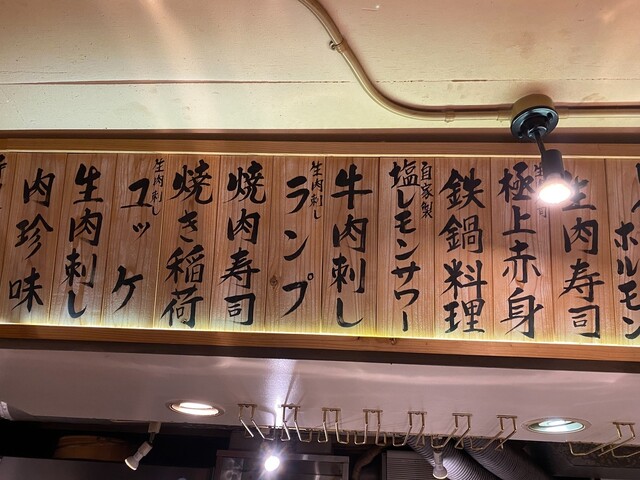 ホルモン
生肉寿司
極上赤身
鉄鍋料理
自家製
塩レモンサワー
牛肉刺し
生肉刺し
ランプ
焼肉寿司
焼き稲荷
生肉刺し
ユッケ
生肉刺し
肉珍味